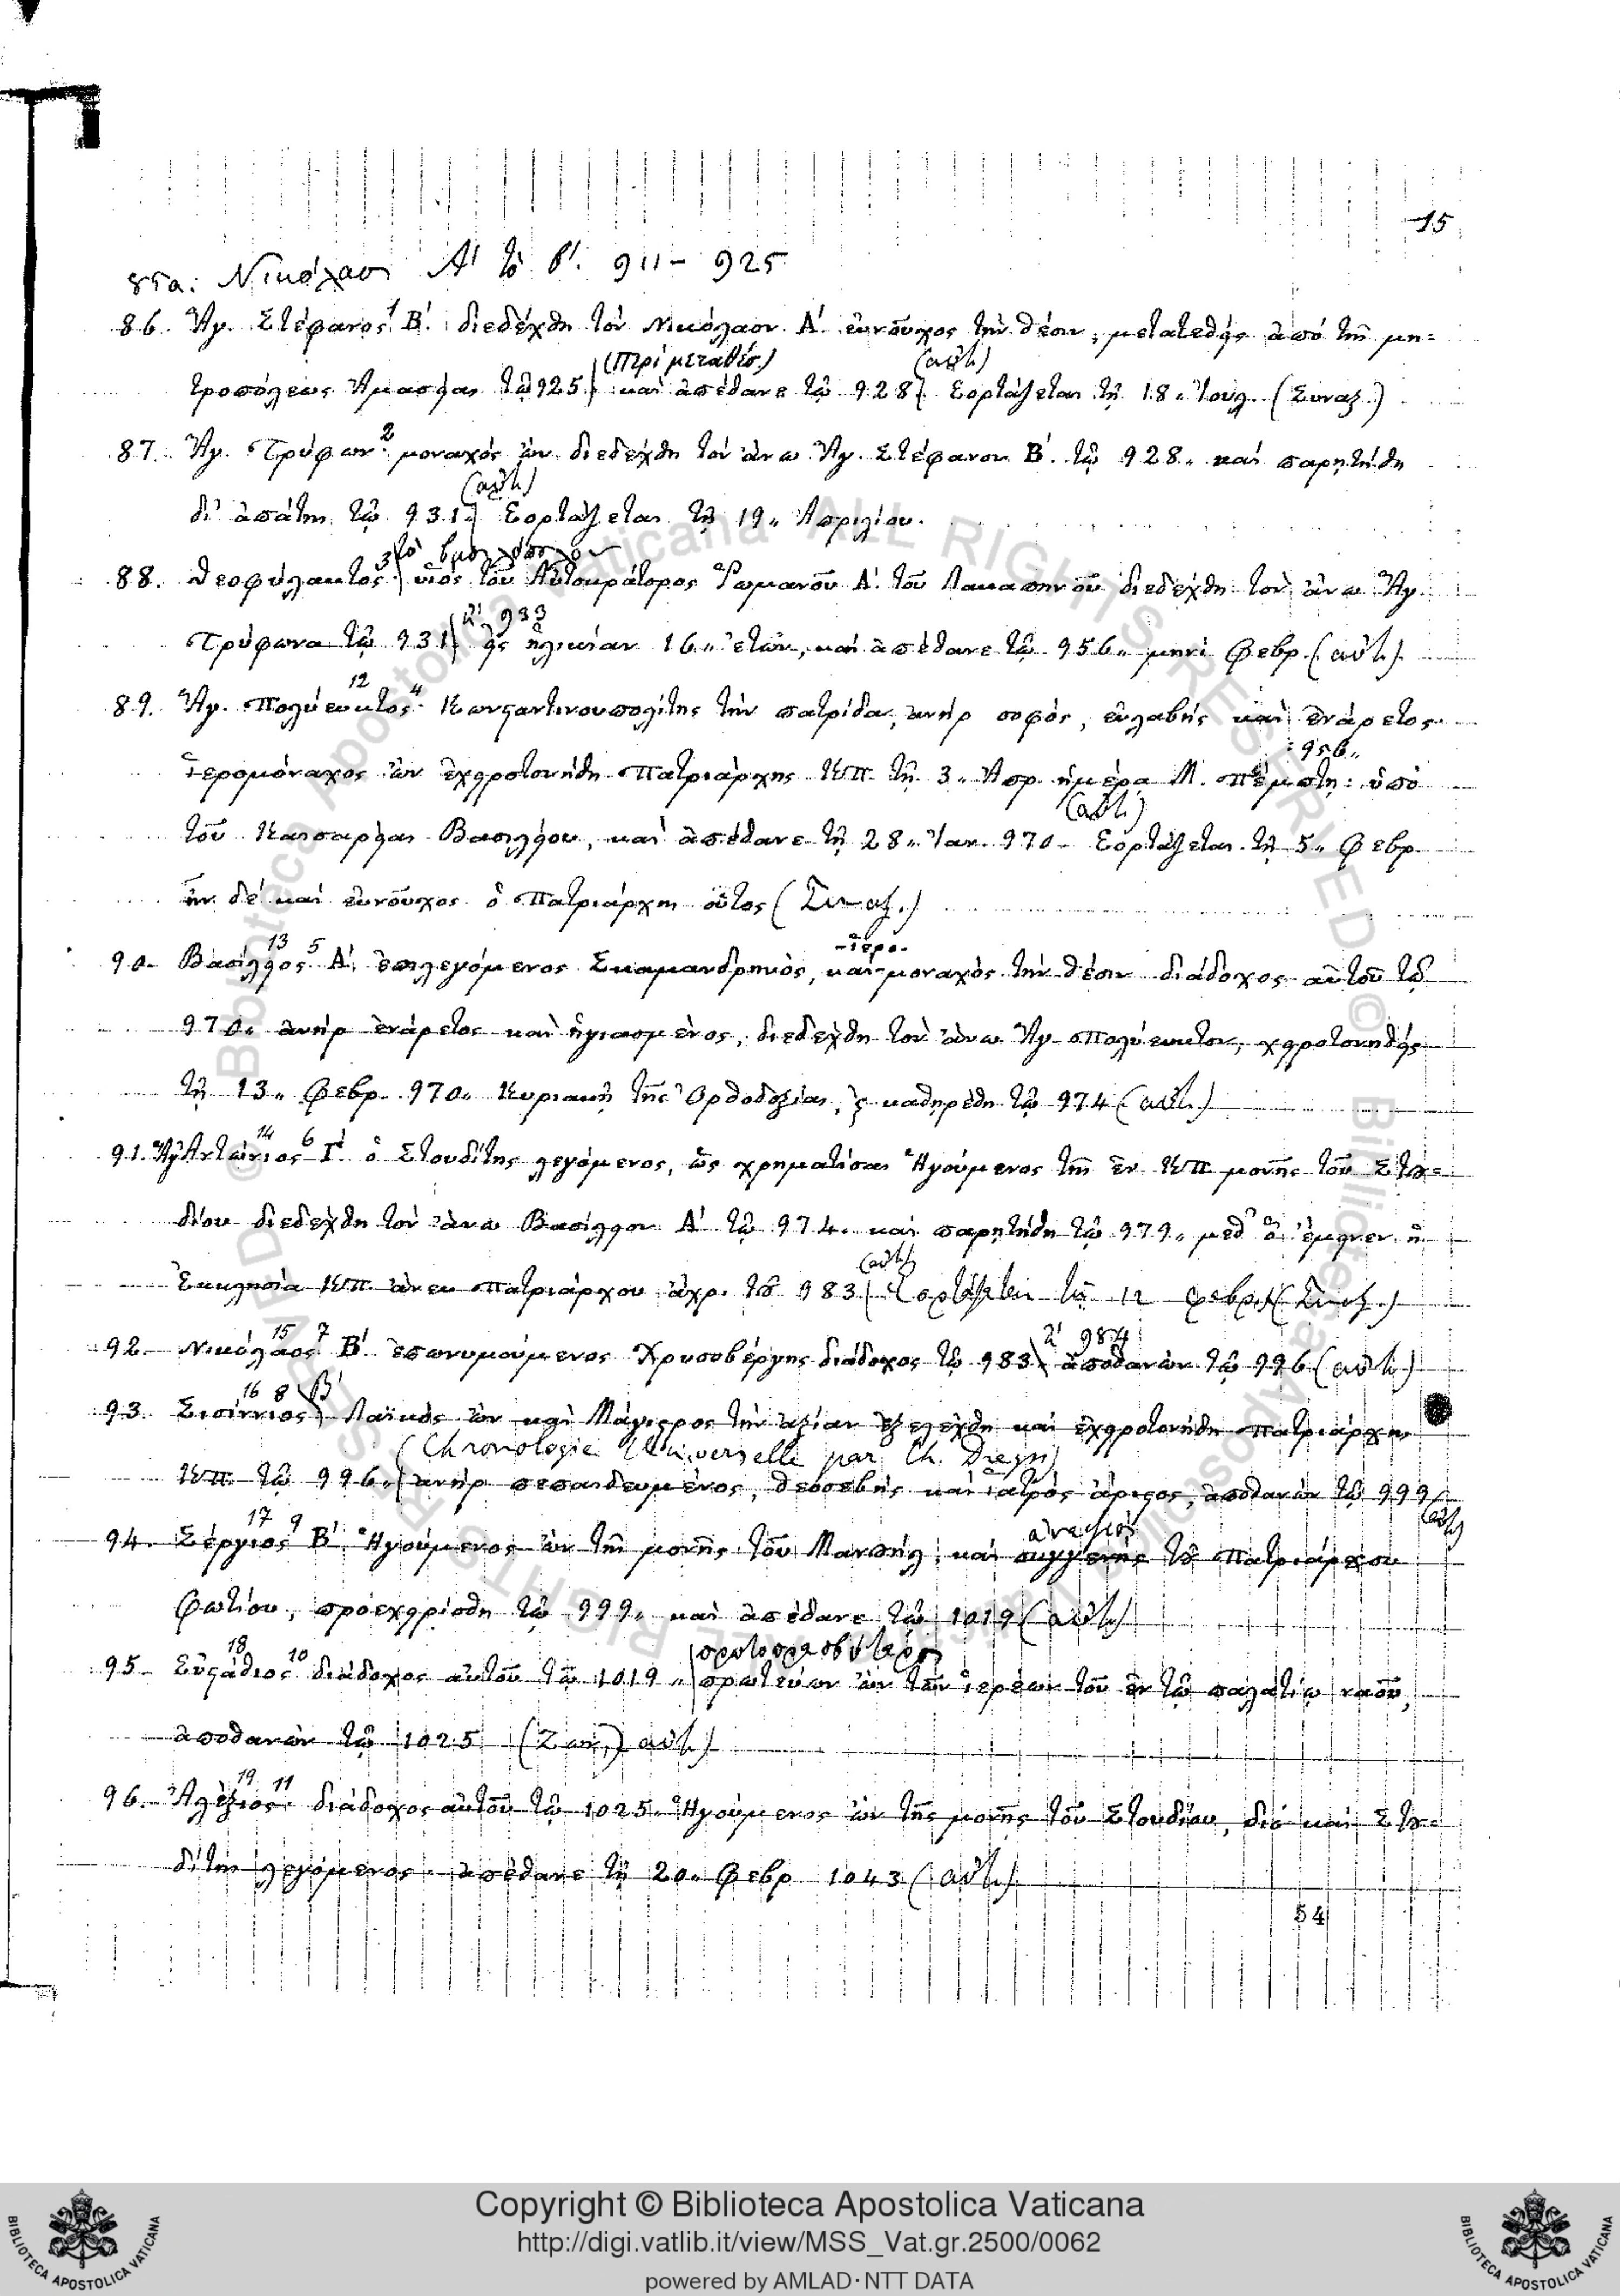 15
85α: Νικόλαος Α' τὸ β'. 911- 925
86. Ἅγ. Στέφανος 1 Β'. διεδέχθη τὸν Νικόλαον Α'. εὐνοῦχος τὴν θέσιν, μετατεθεὶς ἀπὸ τῆς μη=
(Περὶ μεταθέσ.) (αὐτ.)
τροπόλεως Ἀμασείας τῷ 925. καὶ ἀπέθανε τῷ 928. Ἑορτάζεται τῇ 18. Ἰουλ. (Συναξ.)
87. Ἅγ. Τρύφων 2 μοναχὸς ὢν διεδέχθη τὸν ἄνω Ἅγ. Στέφανον Β'. τῷ 928. καὶ παρῃτήθη
(αὐτ.)
δι' ἀπάτης τῷ 931. Ἑορτάζεται τῇ 19. Ἀπριλίου.
88. Θεοφύλακτος 3 υἱὸς τοῦ Αὐτοκράτορος Ῥωμανοῦ Α'. τοῦ Λακαπηνοῦ διεδέχθη τὸν ἄνω Ἅγ.
ἢ 933
Τρύφωνα τῷ 931 εἰς ἡλικίαν 16. ἐτῶν, καὶ ἀπέθανε τῷ 956. μηνὶ Φεβρ. (αὐτ.)
12
89. Ἅγ. Πολύευκτος 4 Κωνσταντινουπολίτης τὴν πατρίδα, ἀνὴρ σοφὸς, εὐλαβὴς καὶ ἐνάρετος
956.
Ἱερομόναχος ὢν ἐχειροτονήθη Πατριάρχης ΚΠ. τῇ 3. Ἀπρ. ἡμέρᾳ Μ. Πέμπτῃ: ὑπὸ
(αὐτ.)
τοῦ Καισαρείας Βασιλείου, καὶ ἀπέθανε τῇ 28. Ἰαν. 970. Ἑορτάζεται τῇ 5. Φεβρ.
ἦν δὲ καὶ εὐνοῦχος ὁ Πατριάρχης οὗτος (Συναξ.)
13 ἱερο-
90. Βασίλειος 5 Α'. ἐπιλεγόμενος Σκαμανδρηνὸς, καὶ μοναχὸς τὴν θέσιν διάδοχος αὐτοῦ τῷ
970. ἀνὴρ ἐνάρετος καὶ ἡγιασμένος, διεδέχθη τὸν ἄνω Ἅγ. Πολύευκτον, χειροτονηθεὶς
τῇ 13. Φεβρ. 970. Κυριακῇ τῆς Ὀρθοδοξίας, ϗ καθῃρέθη τῷ 974 (αὐτ.)
14
91. Ἅγ. Ἀντώνιος 6 Γ'. ὁ Στουδίτης λεγόμενος, ὡς χρηματίσας Ἡγούμενος τῆς ἐν ΚΠ μονῆς τοῦ Στȣ=
δίου διεδέχθη τὸν ἄνω Βασίλειον Α' τῷ 974. καὶ παρῃτήθη τῷ 979. μεθ' ὃ ἔμεινεν ἡ
(αὐτ.)
Ἐκκλησία ΚΠ. ἄνευ Πατριάρχου ἄχρ. τȣ 983. Ἑορτάζεται τῇ 12 Φεβρ. (Συναξ.)
15 ἢ 984
92. Νικόλαος 7 Β'. ἐπονυμούμενος Χρυσοβέργης διάδοχος τῷ 983. ἀποθανὼν τῷ 996 (αὐτ.)
16 8 Β'
93. Σισίννιος Λαϊκὸς ὢν καὶ Μάγιστρος τὴν ἀξίαν ἐξελέχθη καὶ ἐχειροτονήθη Πατριάρχης
(Chronologie Universelle par Ch. Dreyss)
ΚΠ. τῷ 996. ἀνὴρ πεπαιδευμένος, θεοσεβὴς καὶ ἰατρὸς ἄριστος, ἀποθανὼν τῷ 999.
(αὐτ.)
17 ἀνεψιὸς
94. Σέργιος 9 Β' Ἡγούμενος ὢν τῆς μονῆς τοῦ Μανουὴλ, καὶ συγγενὴς τȣ Πατριάρχου
Φωτίου, προεχειρίσθη τῷ 999. καὶ ἀπέθανε τῷ 1019 (αὐτ.)
18 πρωτοπρεσβύτερος
95. Εὐστάθιος 10 διάδοχος αὐτοῦ τῷ 1019. πρωτεύων ὢν τῶν ἱερέων τοῦ ἐν τῷ παλατίῳ ναοῦ,
ἀποθανὼν τῷ 1025 αὐτ.)
19
96. Ἀλέξιος 11 διάδοχος αὐτοῦ τῷ 1025. Ἡγούμενος ὢν τῆς μονῆς τοῦ Στουδίου, διὸ καὶ Στȣ=
δίτης λεγόμενος. ἀπέθανε τῇ 20. Φεβρ 1043 (αὐτ.)
54
Copyright © Biblioteca Apostolica Vaticana
http://digi.vatlib.it/view/MSS_Vat.gr.2500/0062
powered by AMLAD·NTT DATA